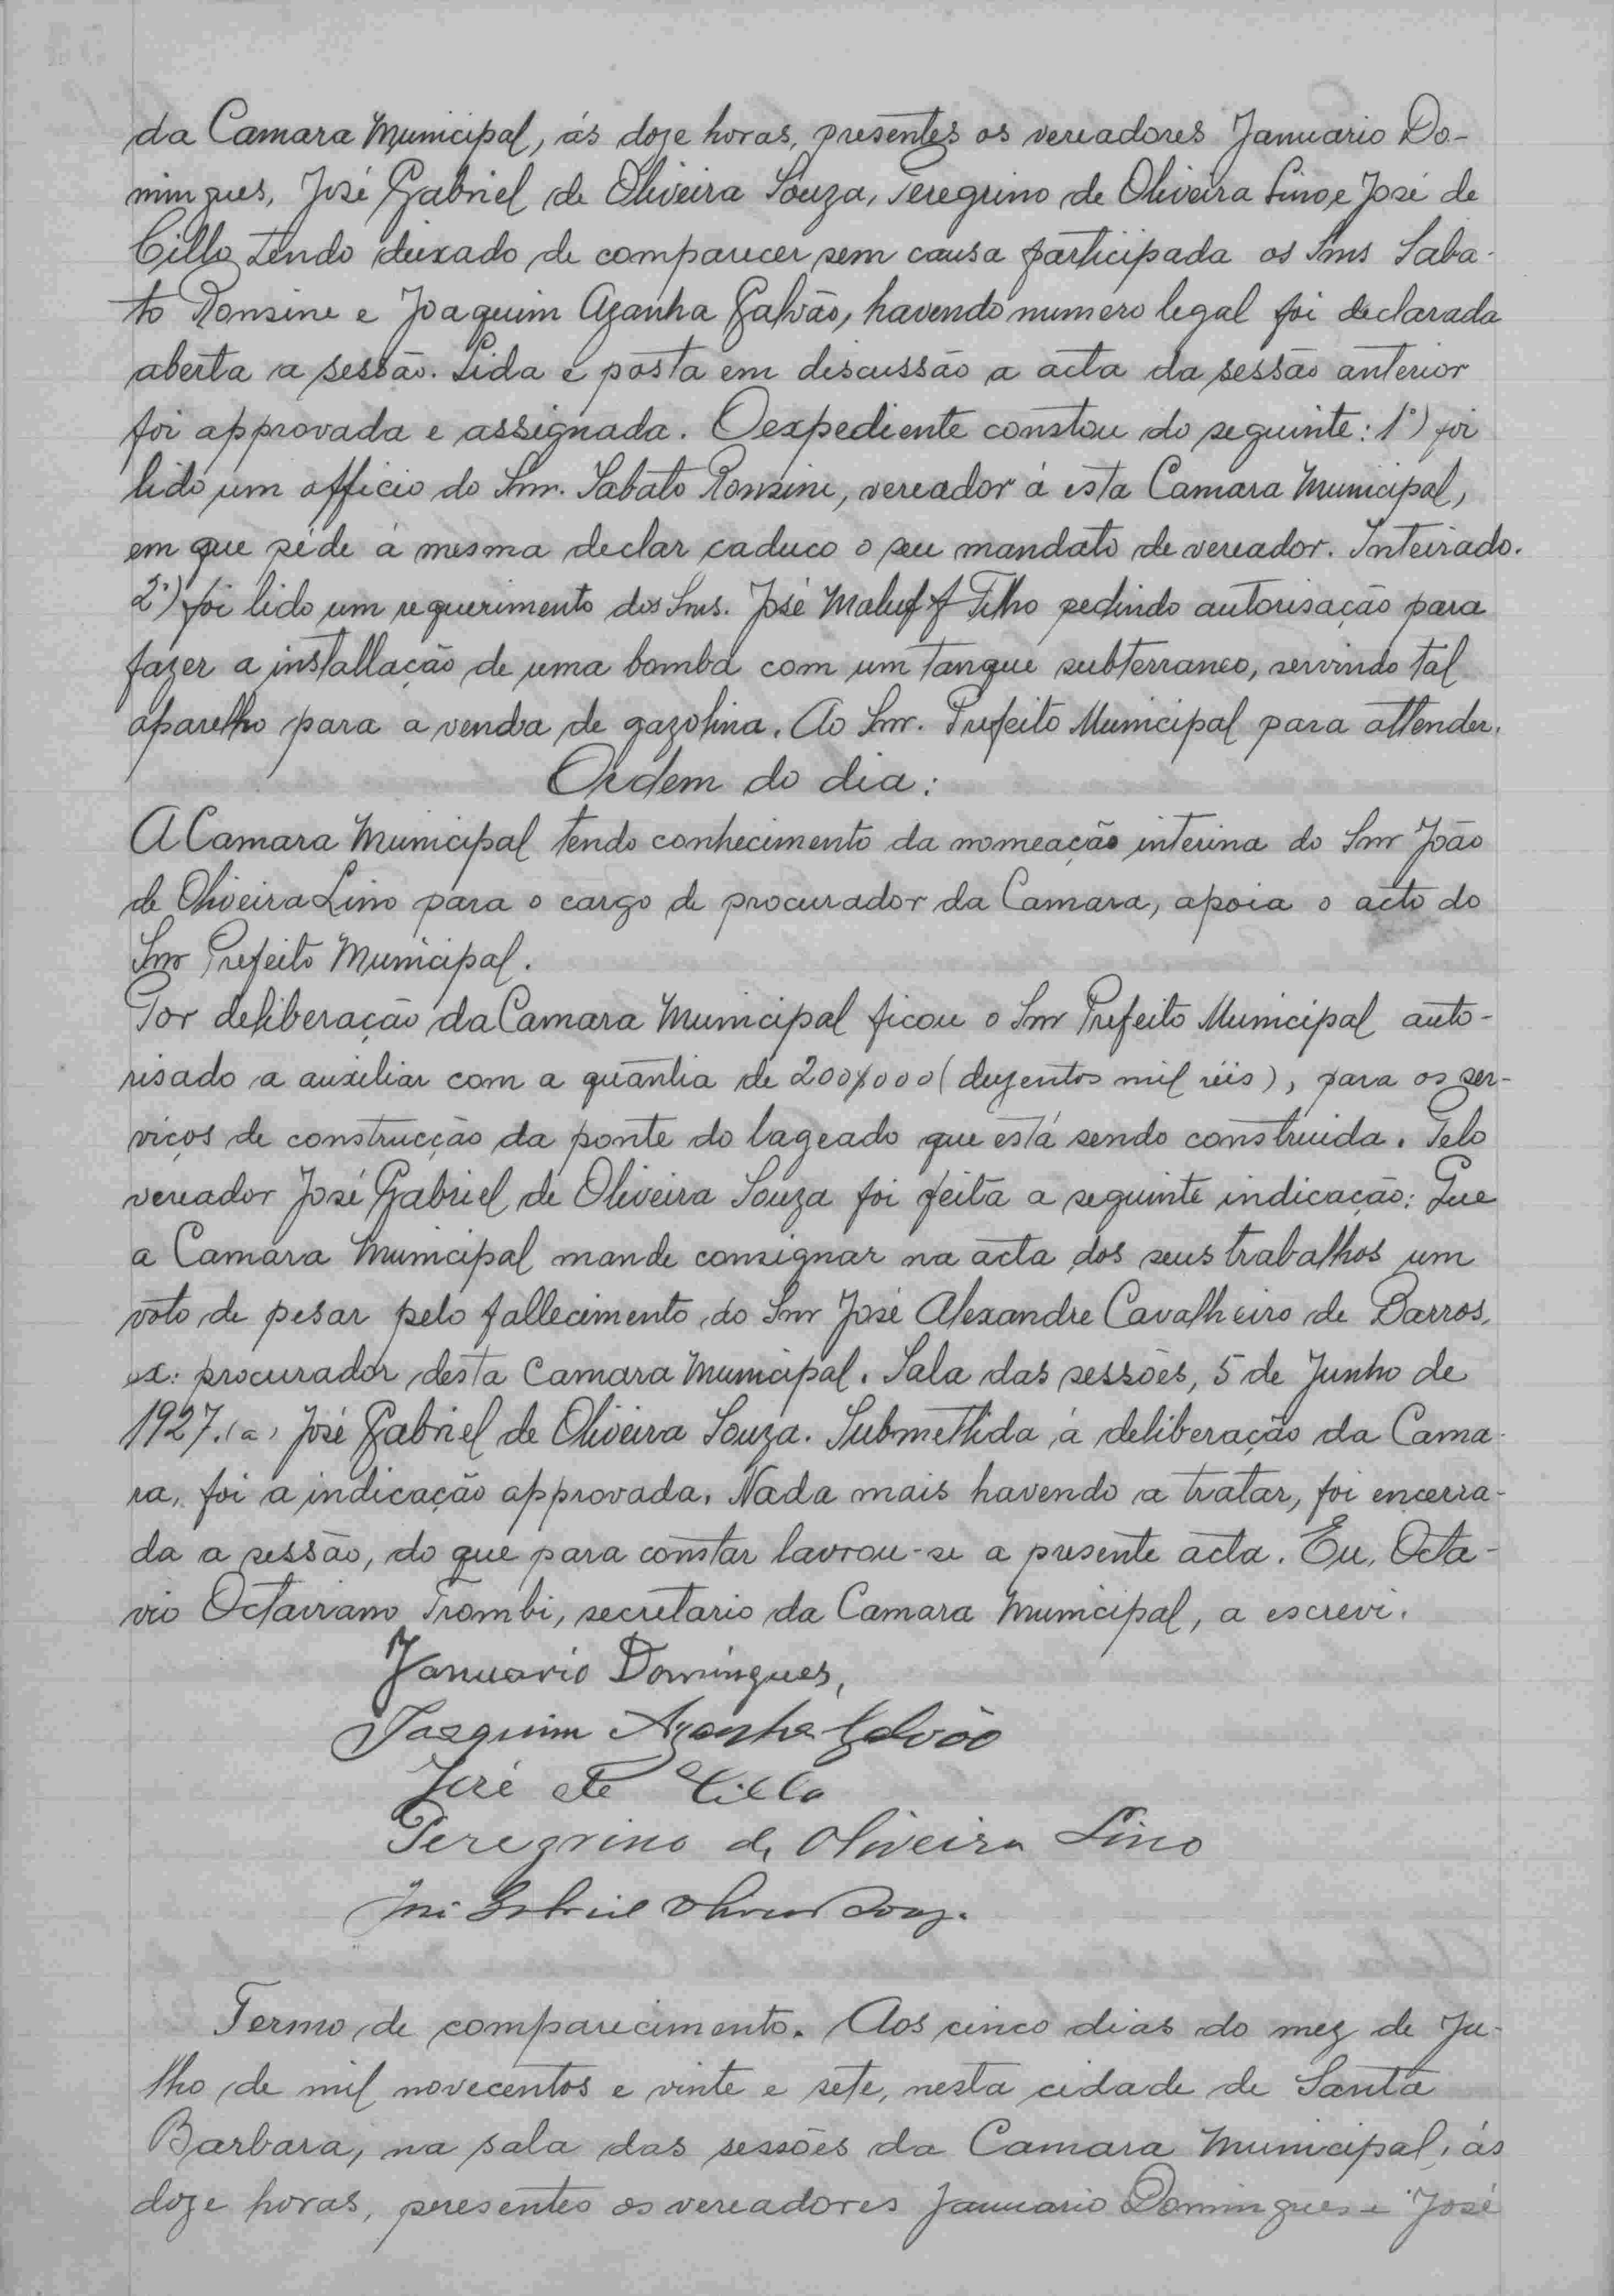 da Camara Municipal, ás doze horas, presentes os vereadores Januario Do-
mingues, José Gabriel de Oliveira Souza, Peregrino de Oliveira Lino, e José de
Cillo, tendo deixado de comparecer sem causa participada os Snrs Saba-
to Ronsine e Joaquim Azanha Galvão, havendo numero legal foi declarada
aberta a sessão. Lida e posta em discussão a acta da sessão anterior
foi approvada e assignada. O expediente constou do seguinte: 1º) foi
lido um officio do Snr. Sabato Ronsini, vereador á esta Camara Municipal,
em que péde á mesma declar caduco o seu mandato de vereador. Inteirado.
2º) foi lido um requerimento dos Snrs. José Maluf & Filho pedindo autorisação para
fazer a installação de uma bomba com um tanque subterraneo, servindo tal
aparelho para a venda de gazolina. Ao Snr. Prefeito Municipal para attender.
Ordem do dia:
A Camara Municipal tendo conhecimento da nomeação interina do Snr João
de Oliveira Lino para o cargo de procurador da Camara, apoia o acto do
Snr Prefeito Municipal.
Por deliberação da Camara Municipal ficou o Snr Prefeito Municipal auto-
risado a auxiliar com a quantia de 200$000 (duzentos mil réis), para os ser-
viços de construcção da ponte do lageado que está sendo construida. Pelo
vereador José Gabriel de Oliveira Souza foi feita a seguinte indicação: Que
a Camara Municipal mande consignar na acta dos seus trabalhos um
voto de pesar pelo fallecimento do Snr José Alexandre Cavalheiro de Barros,
ex: procurador desta Camara Municipal. Sala das sessões, 5 de Junho de
1927. (a) José Gabriel de Oliveira Souza. Submettida á deliberação da Cama-
ra, foi a indicação approvada. Nada mais havendo a tratar, foi encerra-
da a sessão, do que para constar lavrou-se a presente acta. Eu, Octa-
vio Octaviano Trombi, secretario da Camara Municipal, a escrevi.
Januario Domingues,
Joaquim Azanha Galvão
José de Cillo
Peregrino de Oliveira Lino
José Gabriel Oliveira Souza.
Termo de comparecimento. Aos cinco dias do mez de Ju-
lho de mil novecentos e vinte e sete, nesta cidade de Santa
Barbara, na sala das sessões da Camara Municipal, ás
doze horas, peresentes os vereadores Januario Domingues e José